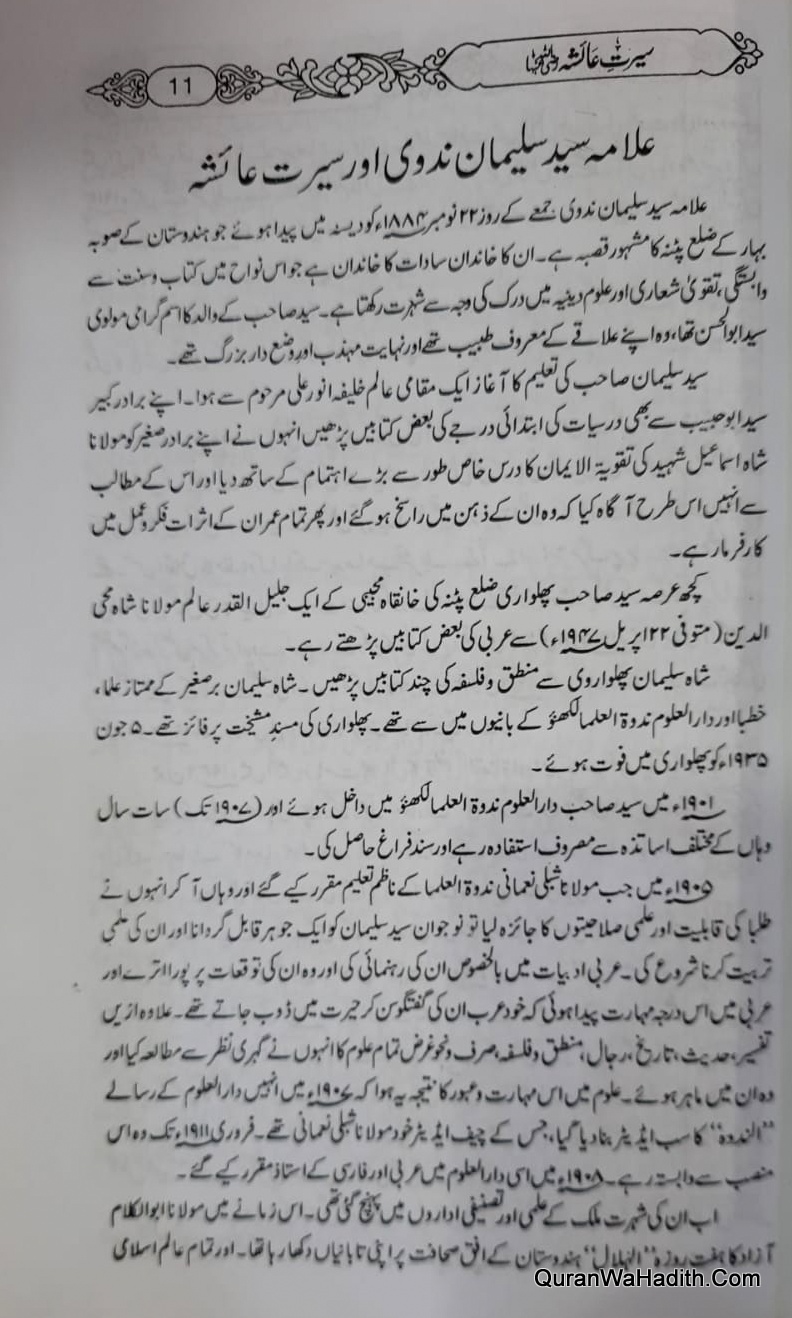 سیرتِ عائشہ رضی اللہ عنہا
11
علامہ سید سلیمان ندوی اور سیرت عائشہ
علامہ سید سلیمان ندوی جمعے کے روز ۲۲ نومبر ۱۸۸۴ء کو دیسنہ میں پیدا ہوئے جو ہندوستان کے صوبہ
بہار کے ضلع پٹنہ کا مشہور قصبہ ہے۔ ان کا خاندان سادات کا خاندان ہے جو اس نواح میں کتاب وسنت سے
وابستگی، تقویٰ شعاری اور علوم دینیہ میں درک کی وجہ سے شہرت رکھتا ہے۔ سید صاحب کے والد کا اسم گرامی مولوی
سید ابوالحسن تھا، وہ اپنے علاقے کے معروف طبیب تھے اور نہایت مہذب اور وضع دار بزرگ تھے۔
سید سلیمان صاحب کی تعلیم کا آغاز ایک مقامی عالم خلیفہ انور علی مرحوم سے ہوا۔ اپنے برادر کبیر
سید ابو حبیب سے بھی درسیات کی ابتدائی درجے کی بعض کتابیں پڑھیں انہوں نے اپنے برادر صغیر کو مولانا
شاہ اسماعیل شہید کی تقویۃ الایمان کا درس خاص طور سے بڑے اہتمام کے ساتھ دیا اور اس کے مطالب
سے انہیں اس طرح آگاہ کیا کہ وہ ان کے ذہن میں راسخ ہو گئے اور پھر تمام عمر ان کے اثرات فکر و عمل میں
کارفرما رہے۔
کچھ عرصہ سید صاحب پھلواری ضلع پٹنہ کی خانقاہ مجیبی کے ایک جلیل القدر عالم مولانا شاہ محی
الدین (متوفی ۲۲ اپریل ۱۹۴۷ء) سے عربی کی بعض کتابیں پڑھتے رہے۔
شاہ سلیمان پھلواروی سے منطق و فلسفہ کی چند کتابیں پڑھیں۔ شاہ سلیمان برصغیر کے ممتاز علما،
خطبا اور دارالعلوم ندوۃ العلما لکھنؤ کے بانیوں میں سے تھے۔ پھلواری کی مسند مشیخت پر فائز تھے۔ ۵ جون
۱۹۳۵ء کو پھلواری میں فوت ہوئے۔
۱۹۰۱ء میں سید صاحب دارالعلوم ندوۃ العلما لکھنؤ میں داخل ہوئے اور (۱۹۰۷ تک) سات سال
وہاں کے مختلف اساتذہ سے مصروف استفادہ رہے اور سند فراغ حاصل کی۔
۱۹۰۵ء میں جب مولانا شبلی نعمانی ندوۃ العلما کے ناظم تعلیم مقرر کیے گئے اور وہاں آ کر انہوں نے
طلبا کی قابلیت اور علمی صلاحیتوں کا جائزہ لیا تو نوجوان سید سلیمان کو ایک جوہر قابل گردانا اور ان کی علمی
تربیت کرنا شروع کی۔ عربی ادبیات میں بالخصوص ان کی رہنمائی کی اور وہ ان کی توقعات پر پورا اترے اور
عربی میں اس درجہ مہارت پیدا ہوئی کہ خود عرب ان کی گفتگو سن کر حیرت میں ڈوب جاتے تھے۔ علاوہ ازیں
تفسیر، حدیث، تاریخ، رجال، منطق و فلسفہ، صرف و نحو غرض تمام علوم کا انہوں نے گہری نظر سے مطالعہ کیا اور
وہ ان میں ماہر ہوئے۔ علوم میں اس مہارت و عبور کا نتیجہ یہ ہوا کہ ۱۹۰۷ء میں انہیں دارالعلوم کے رسالے
"الندوۃ" کا سب ایڈیٹر بنا دیا گیا، جس کے چیف ایڈیٹر خود مولانا شبلی نعمانی تھے۔ فروری ۱۹۱۱ء تک وہ اس
منصب سے وابستہ رہے۔ ۱۹۰۸ء میں اسی دارالعلوم میں عربی اور فارسی کے استاذ مقرر کیے گئے۔
اب ان کی شہرت ملک کے علمی اور تصنیفی اداروں میں پہنچ گئی تھی۔ اس زمانے میں مولانا ابوالکلام
آزاد کا ہفت روزہ "الہلال" ہندوستان کے افق صحافت پر اپنی تابانیاں دکھا رہا تھا۔ اور تمام عالم اسلامی
QuranWaHadith.Com